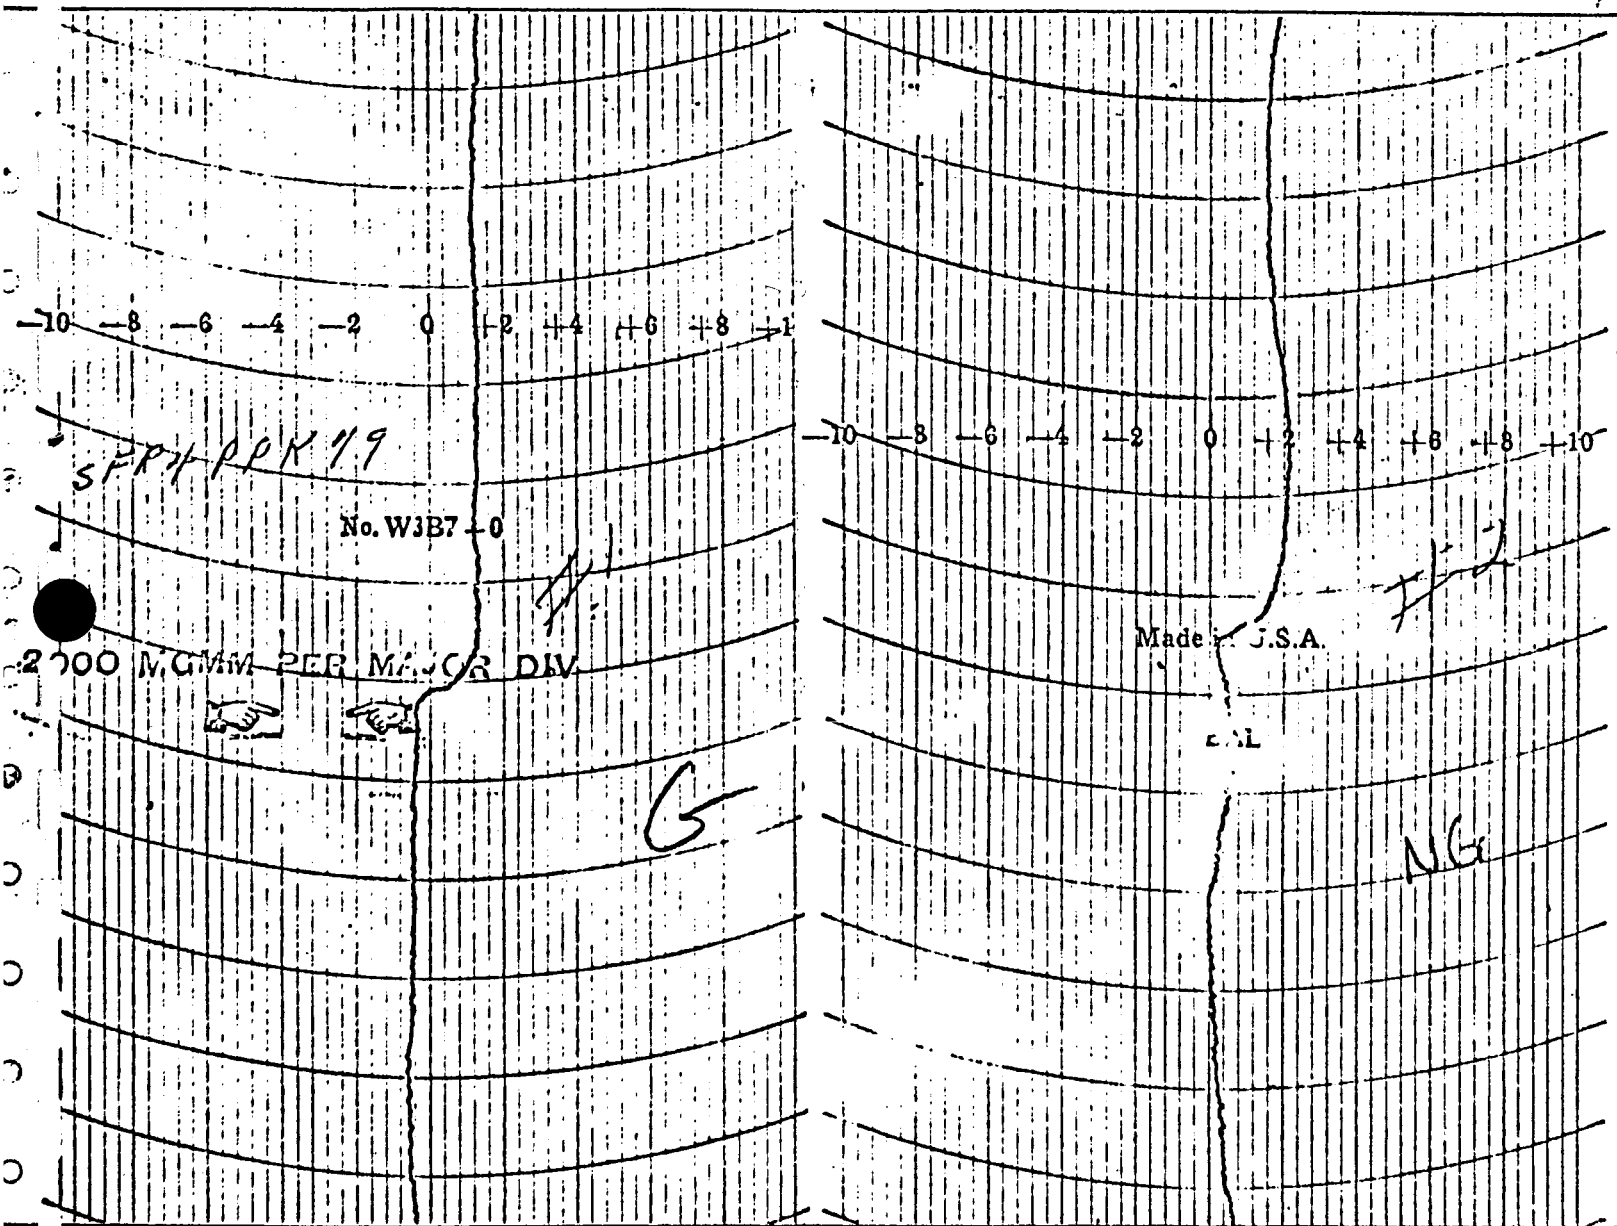 -10 -8 -6 -4 -2 0 +2 +4 +6 +8 +1
No. W3B7-0
#1
2000 MGMM PER MAJOR DIV
G
-10 -8 -6 -4 -2 0 +2 +4 +6 +8 +10
#2
Made in U.S.A.
NG